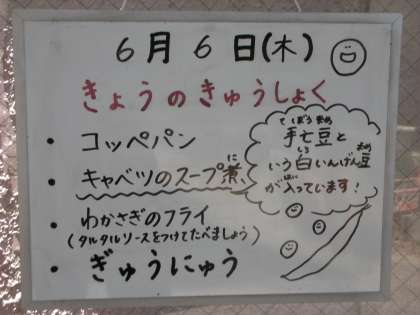 6月6日(木)
きょうのきゅうしょく
・コッペパン
・キャベツのスープ煮
に
・わかさぎのフライ
(タルタルソースをつけてたべましょう)
・ぎゅうにゅう
てぼうまめ
手亡豆と
しろ まめ
いう白いんげん豆
はい
が入っています!